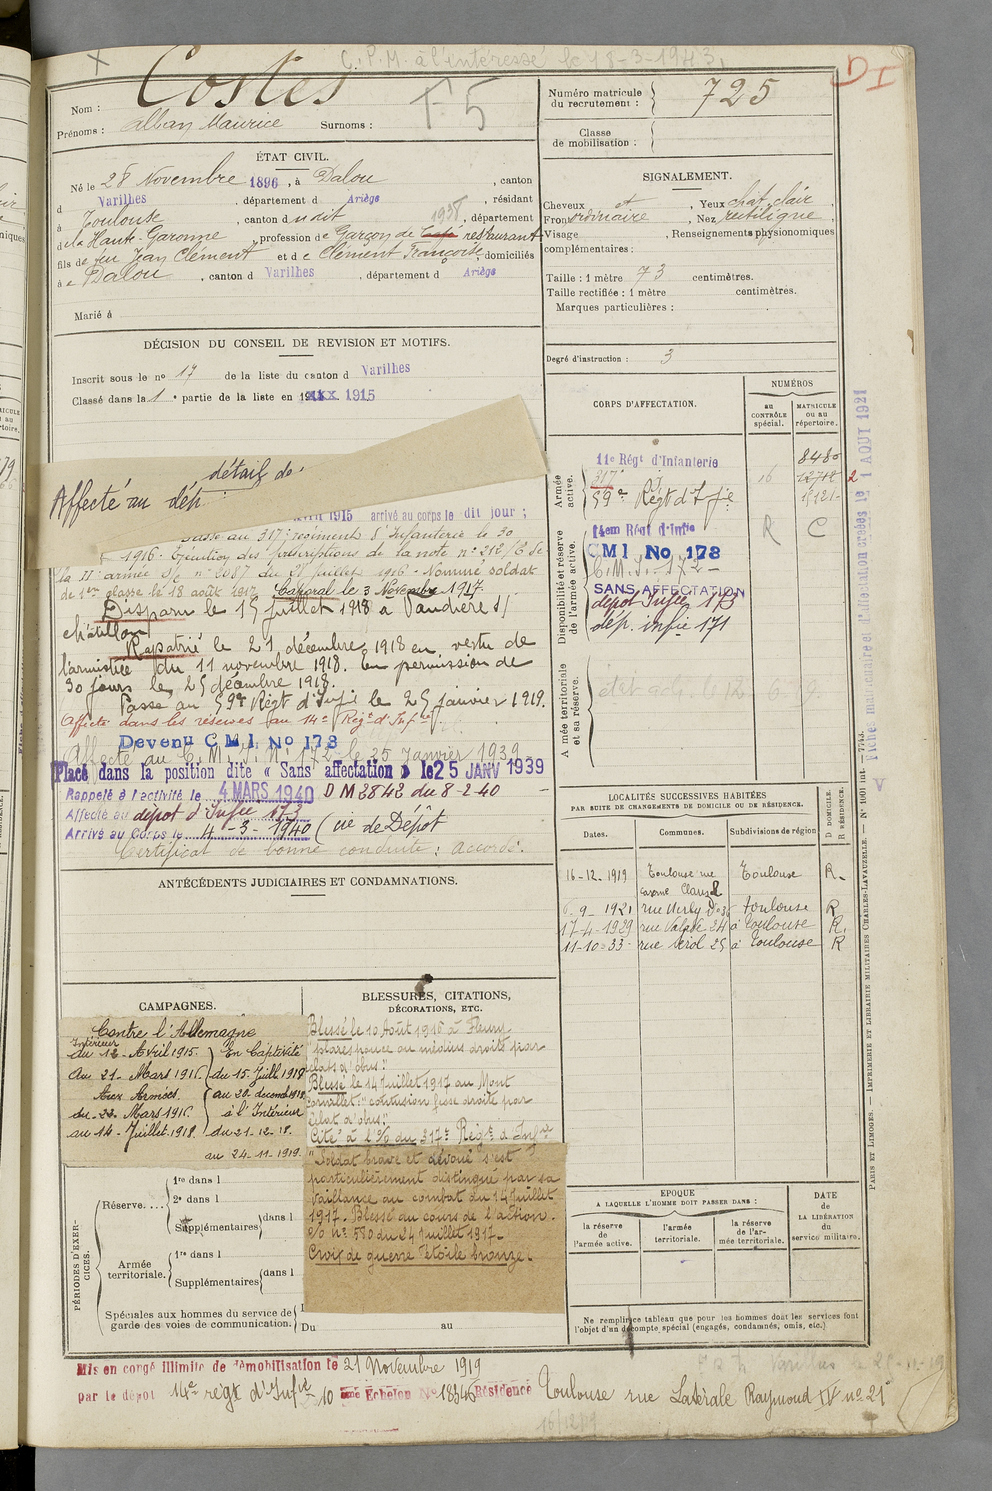 C.P.M. à l'intéressé le 18-3-1943.
D I
Nom : Costes
F5
Prénoms : Alban Maurice Surnoms :
Numéro matricule du recrutement : 725
Classe de mobilisation :
ÉTAT CIVIL.
Né le 28 Novembre 1896, à Dalou, canton
d Varilhes, département d Ariège, résidant
à Toulouse, canton du dit 1938, département
de la Haute-Garonne, profession de Garçon de Café restaurant
fils de feu Jean Clément et de Clément Françoise, domiciliés
à Dalou, canton d Varilhes, département d Ariège
Marié à
SIGNALEMENT.
Cheveux et, Yeux chat. clair,
Front ordinaire, Nez rectiligne,
Visage, Renseignements physionomiques
complémentaires :
Taille : 1 mètre 73 centimètres.
Taille rectifiée : 1 mètre centimètres.
Marques particulières :
Degré d'instruction : 3
DÉCISION DU CONSEIL DE REVISION ET MOTIFS.
Inscrit sous le nº 17 de la liste du canton d Varilhes
Classé dans la 1e partie de la liste en 1915
détail de
Affecté au dép.
1915 arrivé au corps le dit jour ;
Passé au 317e régiment d'Infanterie le 30
1916. Exécution des prescriptions de la note nº 212/2 de
la IIe armée nº 2087 du 21 juillet 1916. Nommé soldat
de 1ère classe le 18 août 1917. Caporal le 3 Novembre 1917.
Disparu le 15 juillet 1918 à Vandières s/
châtillon
Rapatrié le 21 décembre 1918 en vertu de
l'armistice du 11 novembre 1918. En permission de
30 jours le 25 décembre 1918.
Passé au 59e Régt d'Infie le 25 janvier 1919.
Affecté dans les réserves au 14e Régt d'Infie.
Devenu C M I No 178
Affecté au C.M.I. Nº 172 le 25 Janvier 1939
Placé dans la position dite « Sans affectation » le 25 JANV 1939
Rappelé à l'activité le 4 MARS 1940 D M 2842 du 8-2-40
Affecté au dépôt d'Infie 173
Arrivé au Corps le 4-3-1940 (Cie de Dépôt
Certificat de bonne conduite : Accordé.
CORPS D'AFFECTATION.
NUMÉROS
au CONTRÔLE spécial.
MATRICULE ou au répertoire.
Armée active.
11e Régt d'Infanterie 8480
317e di 16 12712 2
59e Régt d'Infie
Disponibilité et réserve de l'armée active.
14em Régt d'Infie R C
C M I No 178
C.M.I. 172
SANS AFFECTATION
dépôt Infie 173
dép. infie 171
Armée territoriale et sa réserve.
Fiches matriculaire et d'affectation créées le 1 AOUT 1921
V
LOCALITÉS SUCCESSIVES HABITÉES
PAR SUITE DE CHANGEMENTS DE DOMICILE OU DE RÉSIDENCE.
Dates. Communes. Subdivisions de région
D DOMICILE. R RÉSIDENCE.
16-12-1919 Toulouse rue Caserne Clauzel Toulouse R.
6-9-1921 rue Nº 36 toulouse R
17-4-1929 rue Valade 24 à Toulouse R.
11-10-33 rue Mérol 25 à Toulouse R
ANTÉCÉDENTS JUDICIAIRES ET CONDAMNATIONS.
CAMPAGNES.
Contre l'Allemagne
Intérieur
du 12 Avril 1915.
Au 21 Mars 1916.
Aux Armées.
du 22 Mars 1916.
au 14 Juillet 1918.
En Captivité
du 15 Juill 1918
au 20 décemb 1918
à l'Intérieur
du 21-12-18.
au 24-11-1919.
BLESSURES, CITATIONS, DÉCORATIONS, ETC.
Blessé le 10 Août 1916 à Fleury
droite par
éclats d'obus."
Blessé le 14 Juillet 1917 au Mont
Cornillet : "contusion droite par
éclat d'obus".
Cité à l'O/ du 317e Régt d'Infie
"Soldat brave et dévoué s'est
particulièrement distingué par sa
vaillance au combat du 14 Juillet
1917. Blessé au cours de l'action.
O/ nº 550 du 24 Juillet 1917.
Croix de guerre étoile bronze.
PÉRIODES D'EXERCICES.
Réserve....
1re dans l
2e dans l
Supplémentaires dans l
Armée territoriale.
1re dans l
Supplémentaires dans l
Spéciales aux hommes du service de garde des voies de communication.
Du au
EPOQUE
A LAQUELLE L'HOMME DOIT PASSER DANS :
la réserve de l'armée active.
l'armée territoriale.
la réserve de l'armée territoriale.
DATE de LA LIBÉRATION du service militaire.
Ne remplir ce tableau que pour les hommes dont les services font
l'objet d'un décompte spécial (engagés, condamnés, omis, etc.)
PARIS ET LIMOGES. — IMPRIMERIE ET LIBRAIRIE MILITAIRES CHARLES-LAVAUZELLE. — Nº 1001 int. — 7743.
Mis en congé illimité de démobilisation le 21 Novembre 1919
par le dépôt 14e régt d'Infie 10 eme Echelon No 18346 Résidence Toulouse rue Latérale Raymond IV nº 21
16/12/19